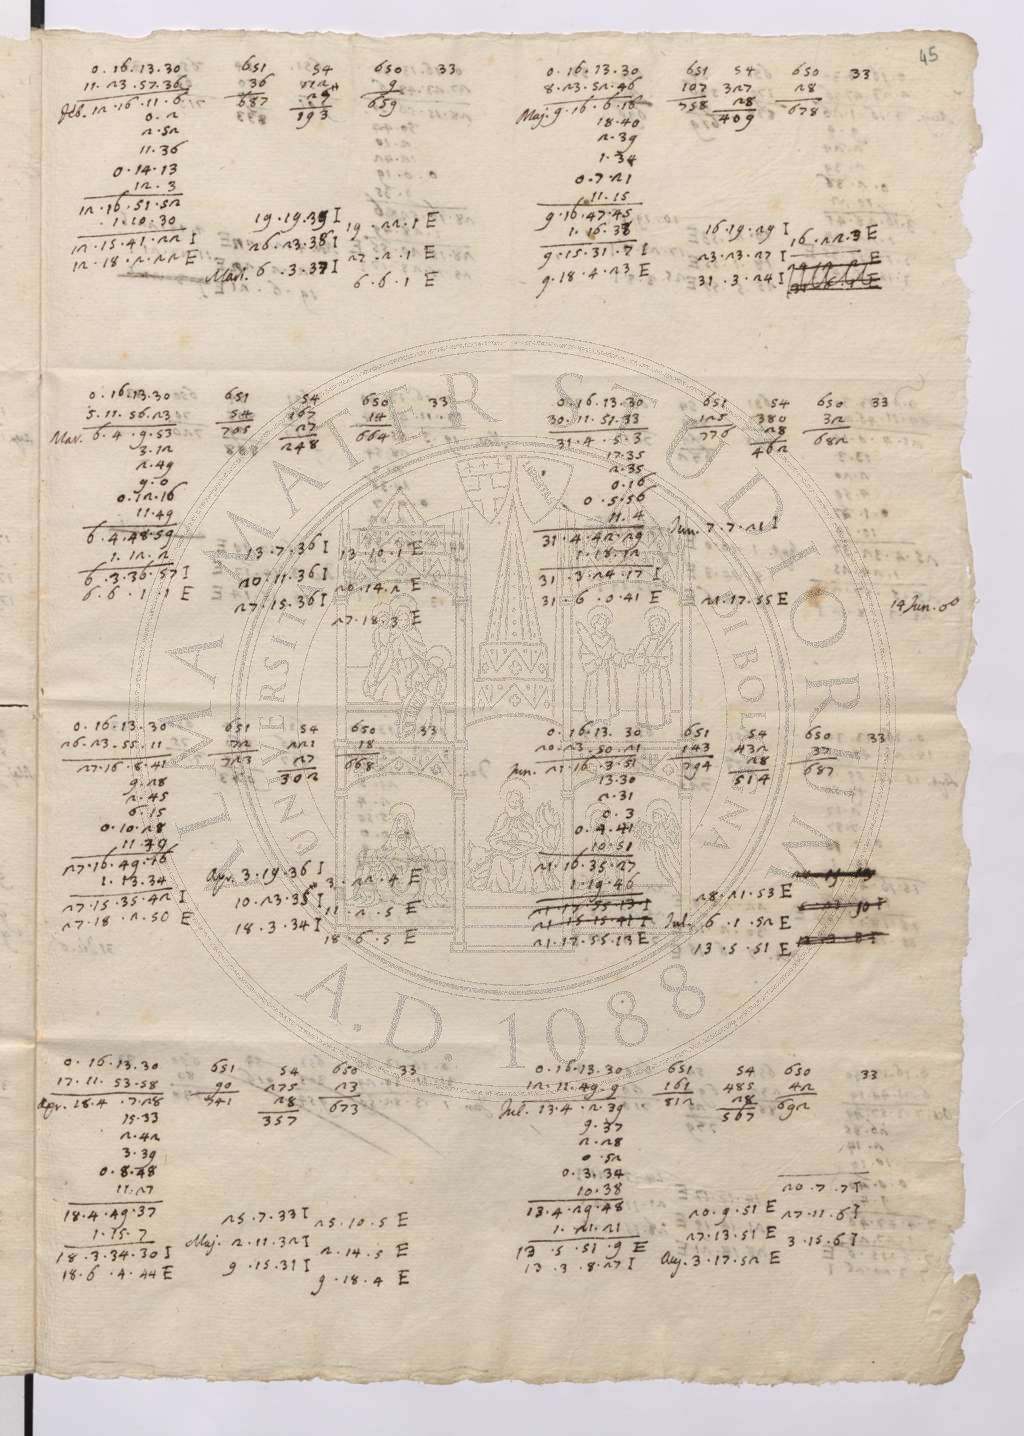 45
0.16.13.30 651 54 650 33
11.23.57.36 36 9
Feb. 12.16.11.6 687 193 659
0.2
2.52
11.36
0.14.13
12.3
12.16.51.52
1.10.30
12.15.41.22 I
12.18.2.22 E
19.19.39 I 19.22.1 E
26.23.38 I 27.2.1 E
Mart. 6.3.37 I 6.6.1 E
0.16.13.30 651 54 650 33
5.11.56.23 54 167 14
27
Mar. 6.4.9.53 705 248 664
3.12
2.49
9.0
0.12.16
11.49
6.4.48.59
1.12.2
6.3.36.57 I
6.6.1.1 E
13.7.36 I 13.10.1 E
20.11.36 I 20.14.2 E
27.15.36 I 27.18.3 E
0.16.13.30 651 54 650 33
26.23.55.11 72 221 18
27
27.16.8.41 723 302 668
9.28
2.45
6.15
0.10.28
11.39
27.16.49.16
1.13.34
27.15.35.42 I
27.18.2.50 E
Apr. 3.19.36 I 3.22.4 E
10.23.35 I 11.2.5 E
18.3.34 I 18.6.5 E
0.16.13.30 651 54 650 33
17.11.53.58 90 275 23
28
Apr. 18.4.7.28 741 357 673
15.33
2.42
3.39
0.8.48
11.27
18.4.49.37
1.15.7
18.3.34.30 I
18.6.4.44 E
25.7.33 I 25.10.5 E
Maj. 2.11.32 I 2.14.5 E
9.15.31 I 9.18.4 E
0.16.13.30 651 54 650 33
8.23.52.46 107 327 28
28
Maj. 9.16.6.16 758 409 678
18.40
2.39
1.34
0.7.21
11.15
9.16.47.45
1.16.38
9.15.31.7 I
9.18.4.23 E
16.19.29 I 16.22.3 E
23.23.27 I
31.3.24 I
0.16.13.30 651 54 650 33
30.11.51.33 125 380 32
28
31.4.5.3 776 462 682
17.35
2.35
0.16
0.5.56
11.4
31.4.42.29
1.18.12
31.3.24.17 I
31.6.0.41 E
Jun. 7.7.21 I
21.17.55 E
14 Jun.
0.16.13.30 651 54 650 33
20.23.50.21 143 432 37
28
Jun. 21.16.3.51 794 514 687
13.30
2.31
0.3
0.4.41
10.51
21.16.35.27
1.19.46
21.17.55.13 I
21.15.15.41 I
21.17.55.13 E
28.21.53 E
Jul. 6.1.52 E
13.5.51 E
0.16.13.30 651 54 650 33
12.11.49.9 161 485 42
28
Jul. 13.4.2.39 812 567 692
9.37
2.28
0.52
0.3.34
10.38
13.4.29.48
1.21.21
13.5.51.9 E
13.3.8.27 I
20.7.7 I
20.9.51 E 27.11.6 I
27.13.51 E 3.15.6 I
Aug. 3.17.52 E
ALMA MATER STUDIORUM
UNIVERSITÀ DI BOLOGNA
A.D. 1088